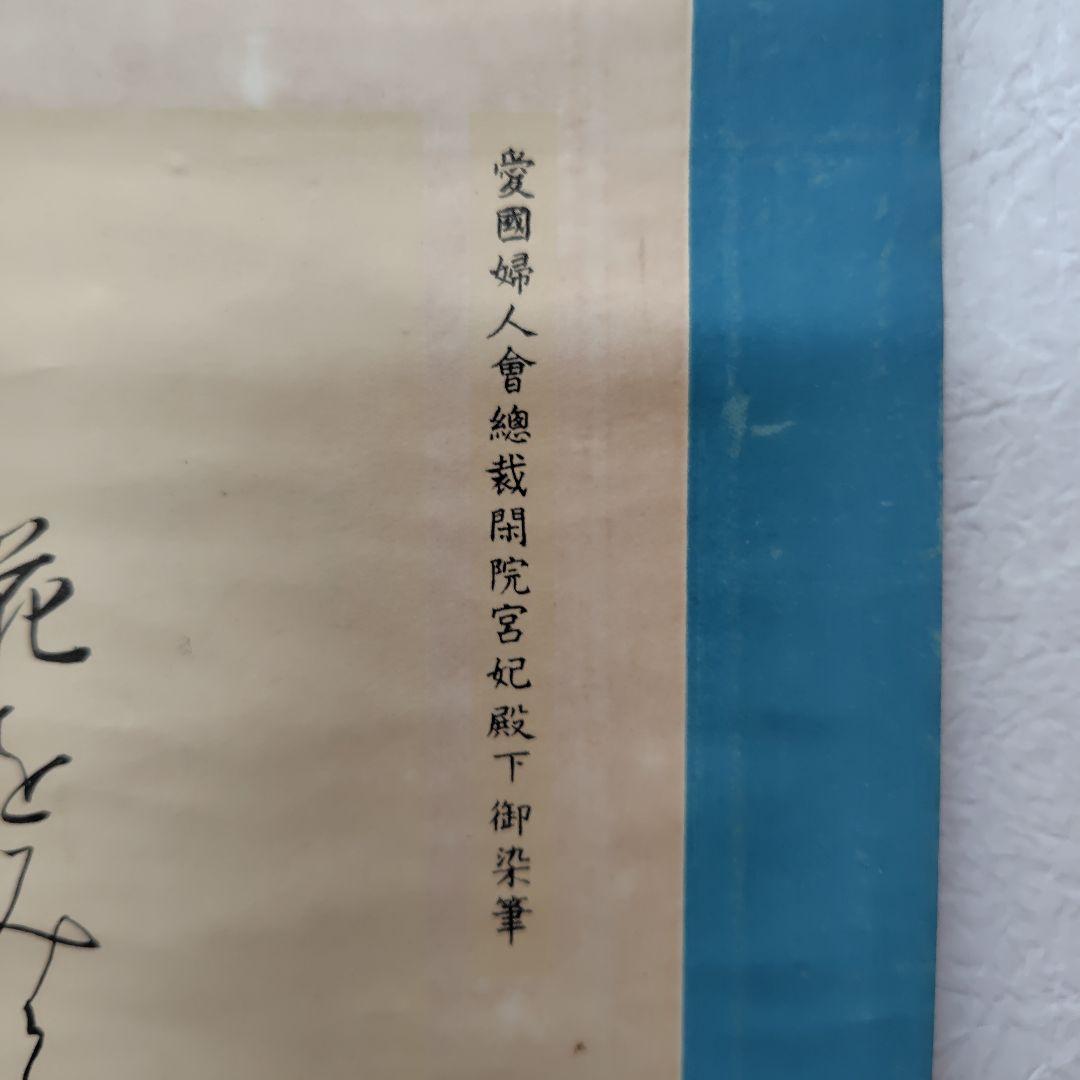 愛國婦人會總裁閑院宮妃殿下御染筆
花をみ